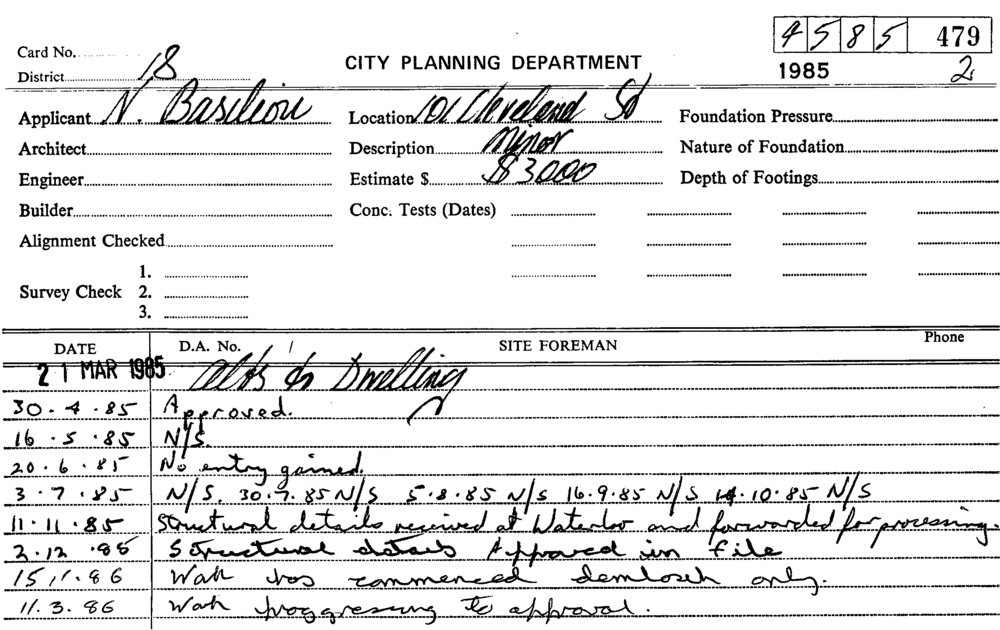 4585 479
Card No.
District 18
CITY PLANNING DEPARTMENT
1985 2
Applicant N. Basiliou Location 101 Cleveland St Foundation Pressure
Architect Description Minor Nature of Foundation
Engineer Estimate $ $3000 Depth of Footings
Builder Conc. Tests (Dates)
Alignment Checked
1.
Survey Check 2.
3.
DATE D.A. No. / SITE FOREMAN Phone
21 MAR 1985 Alts to Dwelling
30.4.85 Approved.
16.5.85 N/S.
20.6.85 No entry gained.
3.7.85 N/S. 30.7.85 N/S 5.8.85 N/S 16.9.85 N/S 14.10.85 N/S
11.11.85 Structural details received at Waterloo and forwarded for processing.
2.12.85 Structural details Approved in file
15/1.86 Wark has commenced demlosch only.
11.3.86 Wark proggressing to approval.